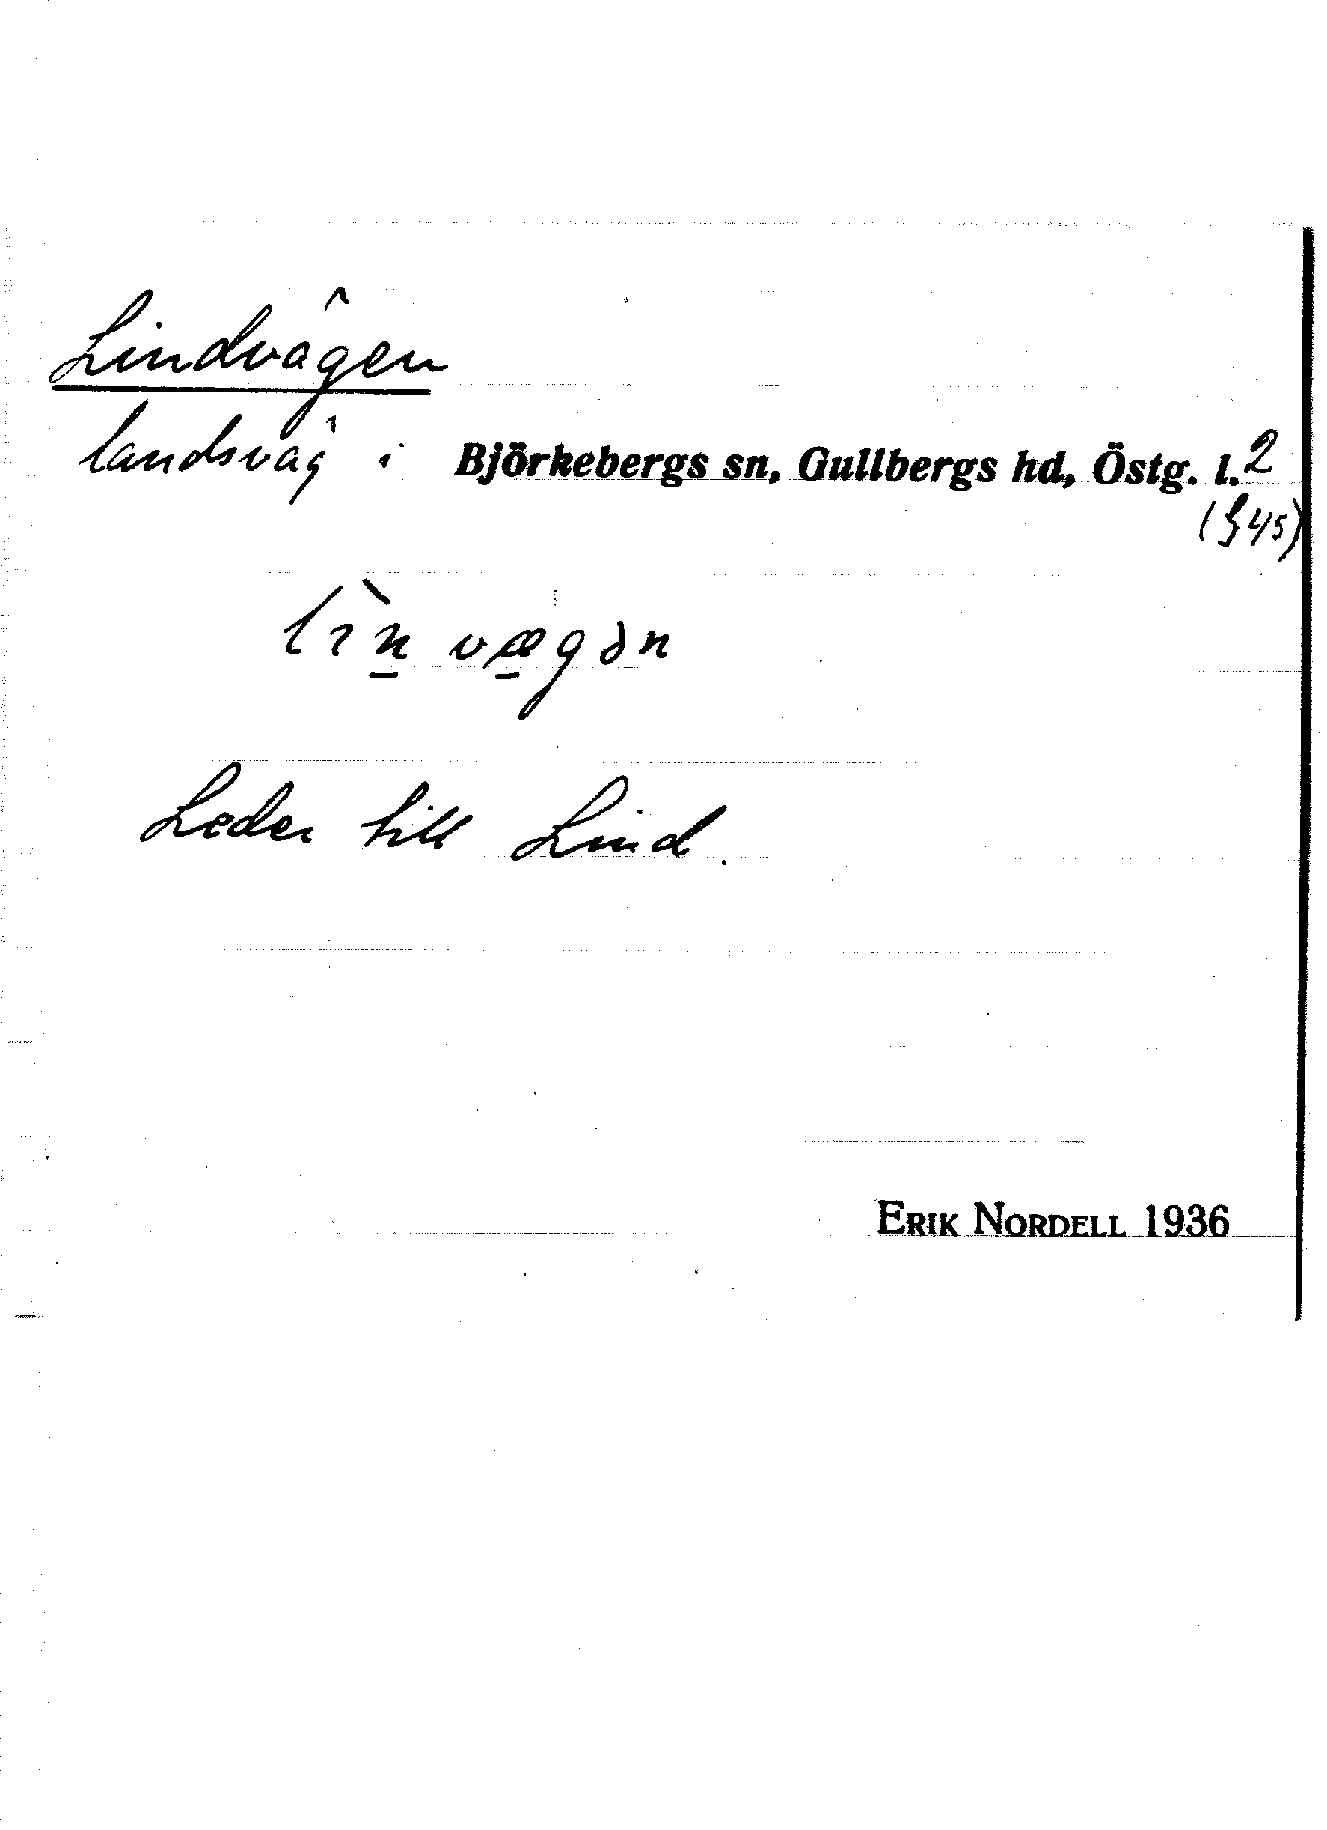 Lindvägen
landsväg i Björkebergs sn, Gullbergs hd, Östg. l. 2
(§45)
lìn̲ væ̲gən
Leder till Lind.
ERIK NORDELL 1936